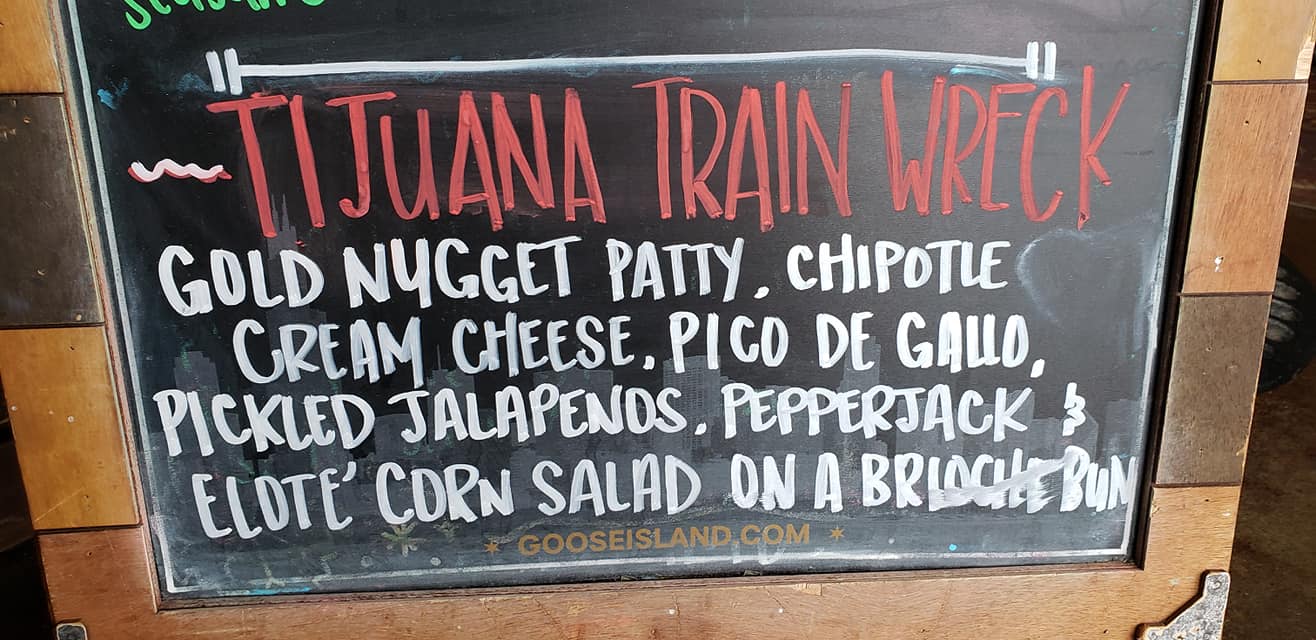 TIJUANA TRAIN WRECK
GOLD NUGGET PATTY, CHIPOTLE
CREAM CHEESE, PICO DE GALLO,
PICKLED JALAPENOS, PEPPERJACK &
ELOTE' CORN SALAD ON A BRIOCHE BUN
GOOSEISLAND.COM